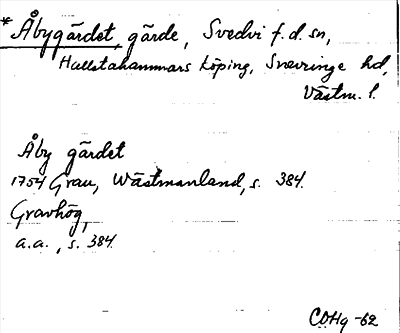 *Åbygärdet, gärde, Svedvi f.d. sn,
Hallstahammars köping, Snevringe hd,
Västm. l.
Åby gärdet
1754 Grau, Wästmanland, s. 384.
Gravhög,
a.a., s. 384.
CDHg -62